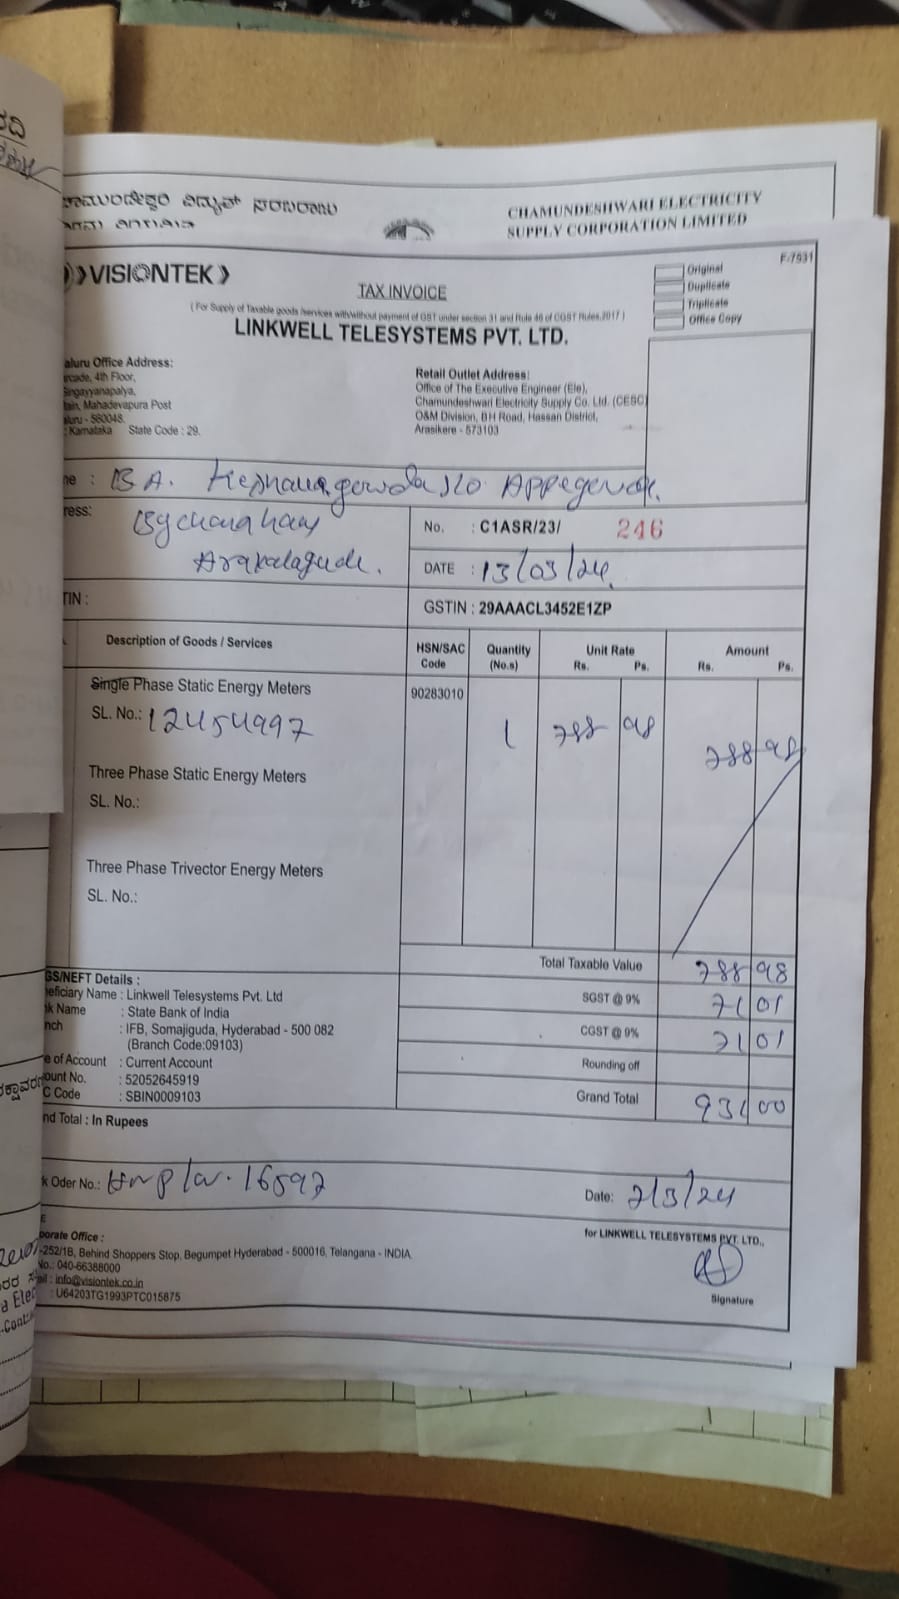 CHAMUNDESHWARI ELECTRICITY
SUPPLY CORPORATION LIMITED
F-7931
VISIONTEK
TAX INVOICE
Original
Duplicate
Triplicate
Office Copy
( For Supply of Taxable goods /services with/without payment of GST under section 31 and Rule 46 of CGST Rules,2017 )
LINKWELL TELESYSTEMS PVT. LTD.
aluru Office Address:
arcade, 4th Floor,
Singayyanapalya,
Mahadevapura Post
aluru - 560048.
: Karnataka State Code : 29.
Retail Outlet Address:
Office of The Executive Engineer (Ele),
Chamundeshwari Electricity Supply Co. Ltd. (CESC)
O&M Division, B H Road, Hassan District,
Arasikere - 573103
me : B A. S/o Appegowda.
ress:
Arakalagudu.
No. : C1ASR/23/ 246
DATE : 13/03/24
TIN :
GSTIN : 29AAACL3452E1ZP
Description of Goods / Services HSN/SAC Code Quantity (No.s) Unit Rate Rs. Ps. Amount Rs. Ps.
Single Phase Static Energy Meters 90283010
SL. No.: 12454997 1 788 98 788 98
Three Phase Static Energy Meters
SL. No.:
Three Phase Trivector Energy Meters
SL. No.:
Total Taxable Value 788 98
SGST @ 9% 71 01
CGST @ 9% 71 01
Rounding off
Grand Total 931 00
GS/NEFT Details :
eficiary Name : Linkwell Telesystems Pvt. Ltd
k Name : State Bank of India
nch : IFB, Somajiguda, Hyderabad - 500 082
(Branch Code:09103)
e of Account : Current Account
ount No. : 52052645919
C Code : SBIN0009103
nd Total : In Rupees
k Oder No.: 16597
Date: 7/3/24
porate Office :
-252/1B, Behind Shoppers Stop, Begumpet Hyderabad - 500016, Telangana - INDIA
No.: 040-66388000
ail : info@visiontek.co.in
: U64203TG1993PTC015875
for LINKWELL TELESYSTEMS PVT. LTD.,
Signature